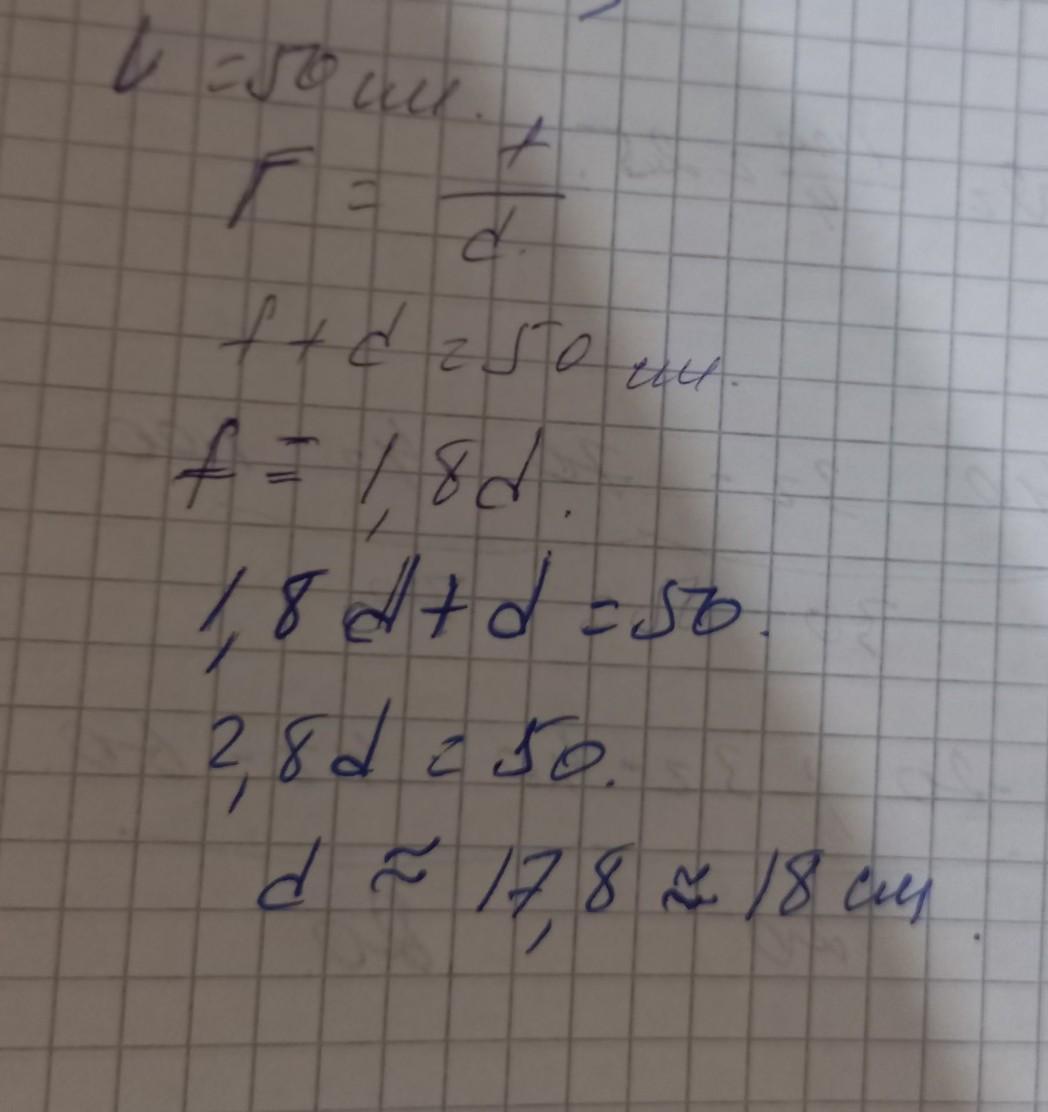 L = 50 см.
Г = f/d.
f + d = 50 см.
f = 1,8d.
1,8d + d = 50.
2,8d = 50.
d ≈ 17,8 ≈ 18 см.